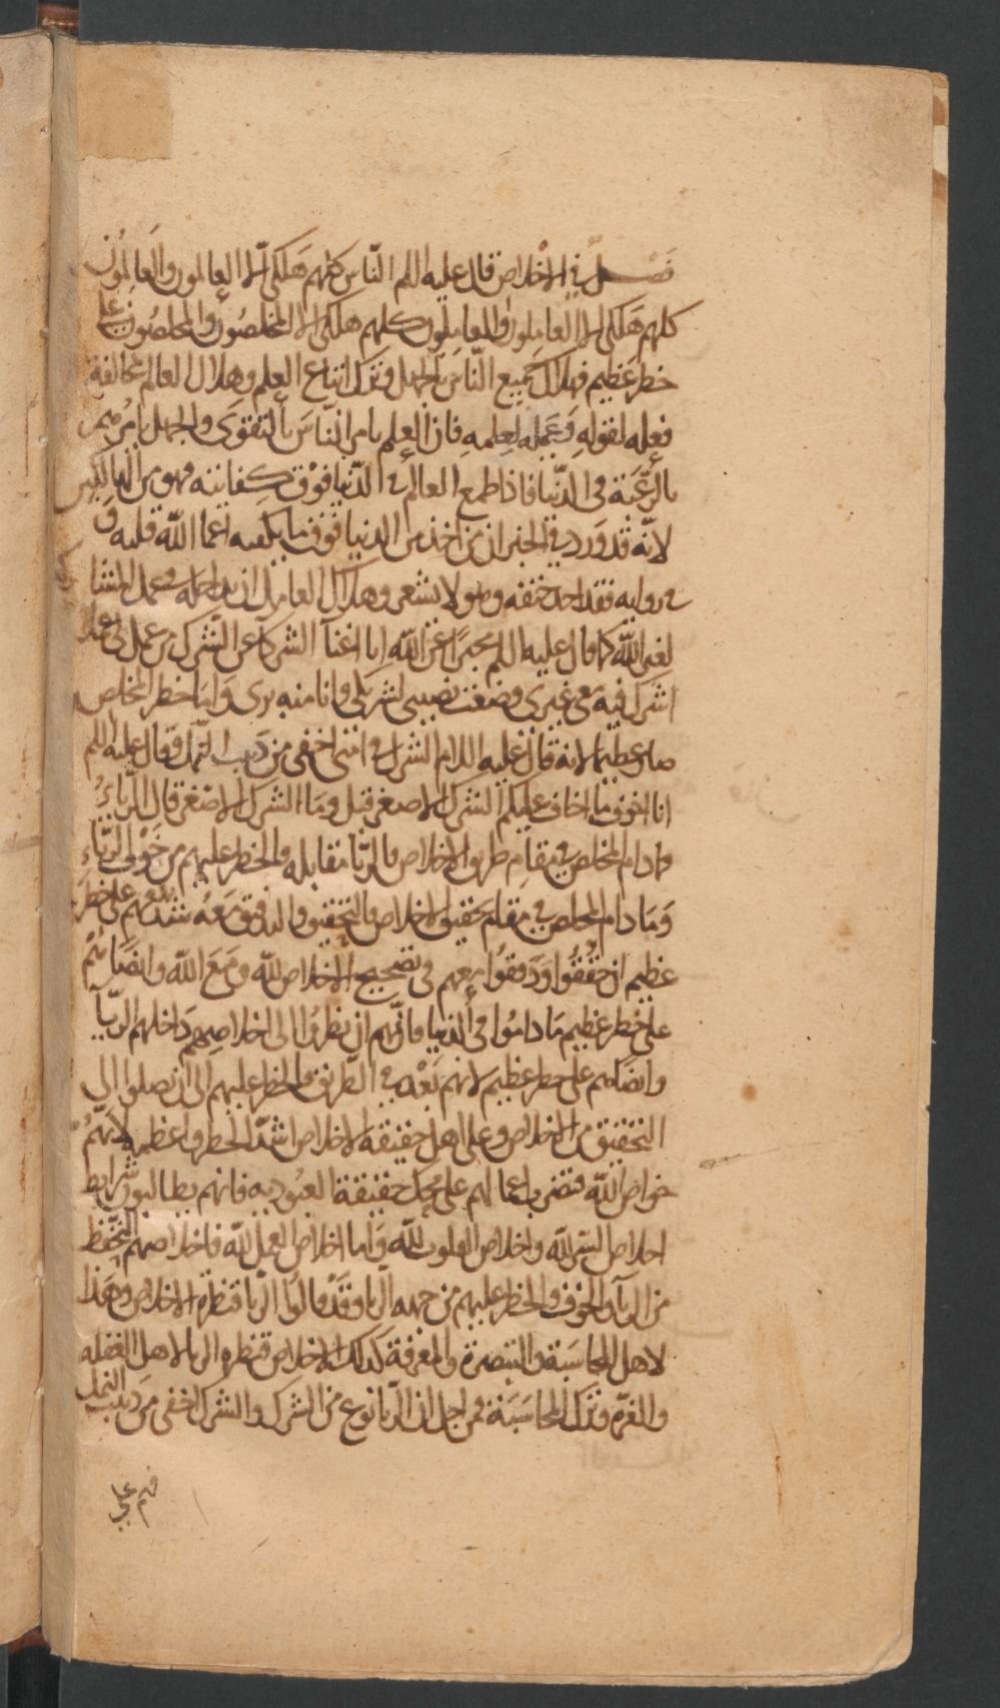 فصل في الاخلاص قال عليه السلم الناس كلهم هلكى الا العالمون والعالمون
كلهم هلكى الا العاملون والعاملون كلهم هلكى الا المخلصون والمخلصون على
خطر عظيم فهلاك جميع الناس بالجهل وترك اتباع العلم وهلاك العالم مخالفة
فعله لقوله وعمله لعلمه فان العلم يامر الناس بالتقوى والجهل يامرهم
بالرغبة في الدنيا فاذا طمع العالم في الدنيا فوق كفايته فهو من الهالكين
لانه قد ورد في الخبر ان من اخذ من الدنيا فوق ما يكفيه اعما الله قلبه و
في رواية فقد اخذ حتفه وهو لا يشعر وهلاك العامل ان
لغير الله كما قال عليه السلم مخبرا عن الله انا اغنا الشركا عن الشرك من عمل لي عملا
اشرك فيه معي غيري وضعت نصيبي لشريكي وانا منه بري واما خطر المخلص
صار عظيما لانه قال عليه السلام الشرك في امتي اخفى من دبيب النمل وقال عليه السلم
انا اخوف ما اخاف عليكم الشرك الاصغر قيل وما الشرك الاصغر قال الرياء
وما دام المخلص في مقام طريق الاخلاص فالريا مقابله والخطر عليهم من خوف الرياء
وما دام المخلص في مقام تحقيق الاخلاص فالتحقيق والتدقيق معه على خطر
عظيم ان حققوا ودققوا معهم في تصحيح الاخلاص لله ومع الله وايضا هم
على خطر عظيم ما داموا في الدنيا فانهم ان نظروا الى اخلاصهم داخلهم الريا
وايضا هم على خطر عظيم لانهم بعد في الطريق والخطر عليهم الى ان يصلوا الى
التحقيق من الاخلاص وعلى اهل حقيقة الاخلاص اشد الخطر واعظمه لانهم
خواص الله فتضرب اعمالهم على محك حقيقة العبودية فانهم يطالبون بشرايط
اخلاص السر لله واخلاص القلوب لله واما اخلاص العمل لله فاخلاصهم التحفظ
من الريا والخوف والخطر عليهم من جهة الريا وقد قالوا الريا قنطرة الاخلاص وهذا
لاهل المحاسبة والتبصرة والمعرفة كذلك الاخلاص قنطرة الريا لاهل الغفلة
والغرة وترك المحاسبة فمن اجل ان الريا نوع من الشرك والشرك اخفى من دبيب النمل
فهم على